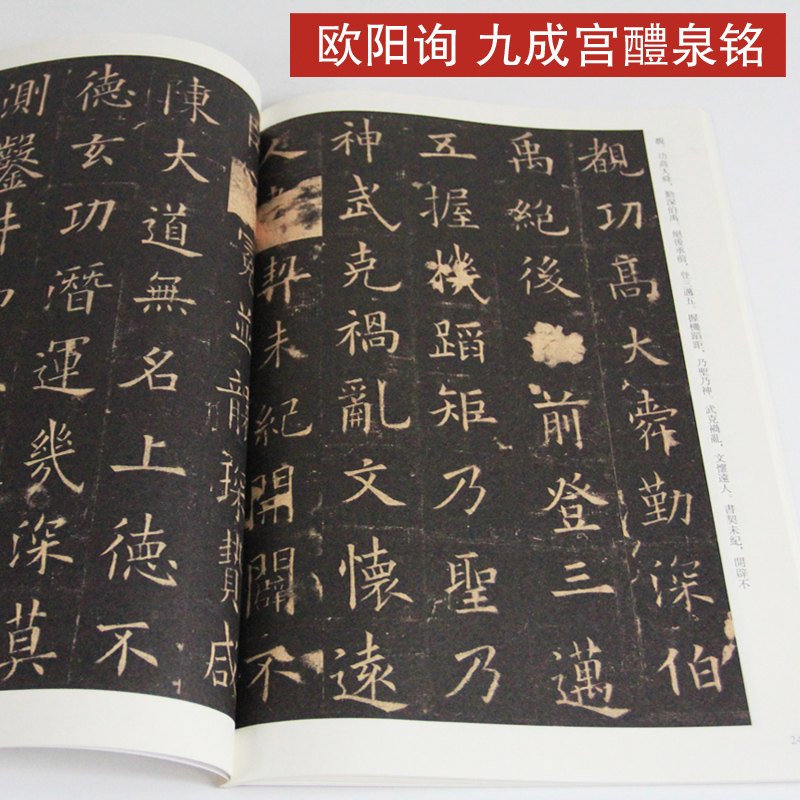 欧阳询 九成宫醴泉铭
覩，功高大舜，勤深伯禹，絕後承前，登三邁五，握機蹈矩，乃聖乃神，武克禍亂，文懷遠人，書契未紀，開辟不
覩功高大舜勤深伯
禹絕後前登三邁
五握機蹈矩乃聖乃
神武克禍亂文懷遠
人契未紀開闢不
並襲琛贄咸
陳大道無名上德不
德玄功潛運幾深莫
測鑿井